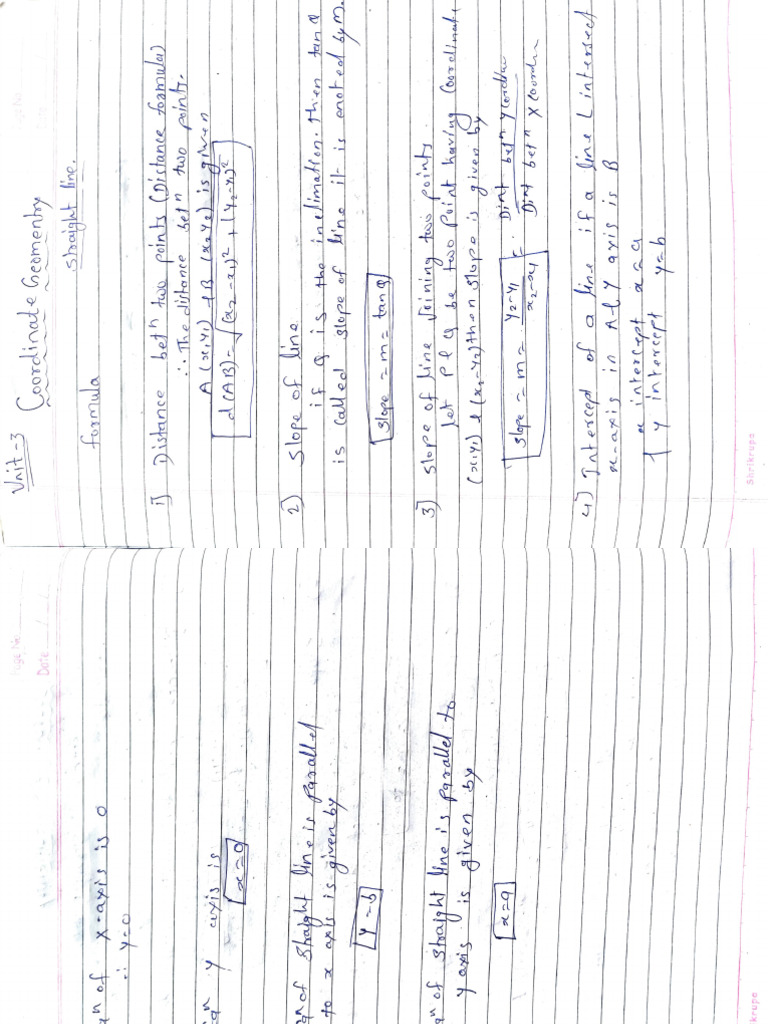 Unit-3 Coordinate Geomentry
straight line.
formula
1) Distance betⁿ two points (Distance formula)
∴ The distance betⁿ two points.
A(x₁y₁) & B(x₂y₂) is given
d(AB) = √(x₂-x₁)² + (y₂-y₁)²
2) Slope of line
if Q is the inclination. then tanQ
is called slope of line it is enoted by m.
slope = m = tanQ
3) slope of line Joining two points
let P & Q be two point having Coordinate
(x₁y₁) & (x₂-y₂) then slope is given by
slope = m = y₂-y₁ / x₂-x₁ = Dint betⁿ y coordi / Dint betⁿ x coordin
4) Intercept of a line if a line L intersect
x-axis in A & y axis is B
x intercept x=a
y intercept y=b
Page No
Date
qⁿ of x-axis is 0
∴ y=0
qⁿ y axis is
x=0
qⁿ of straight line is parallel
to x axis is given by
y=b
qⁿ of straight line is parallel to
y axis is given by
x=a
Shrikrupa